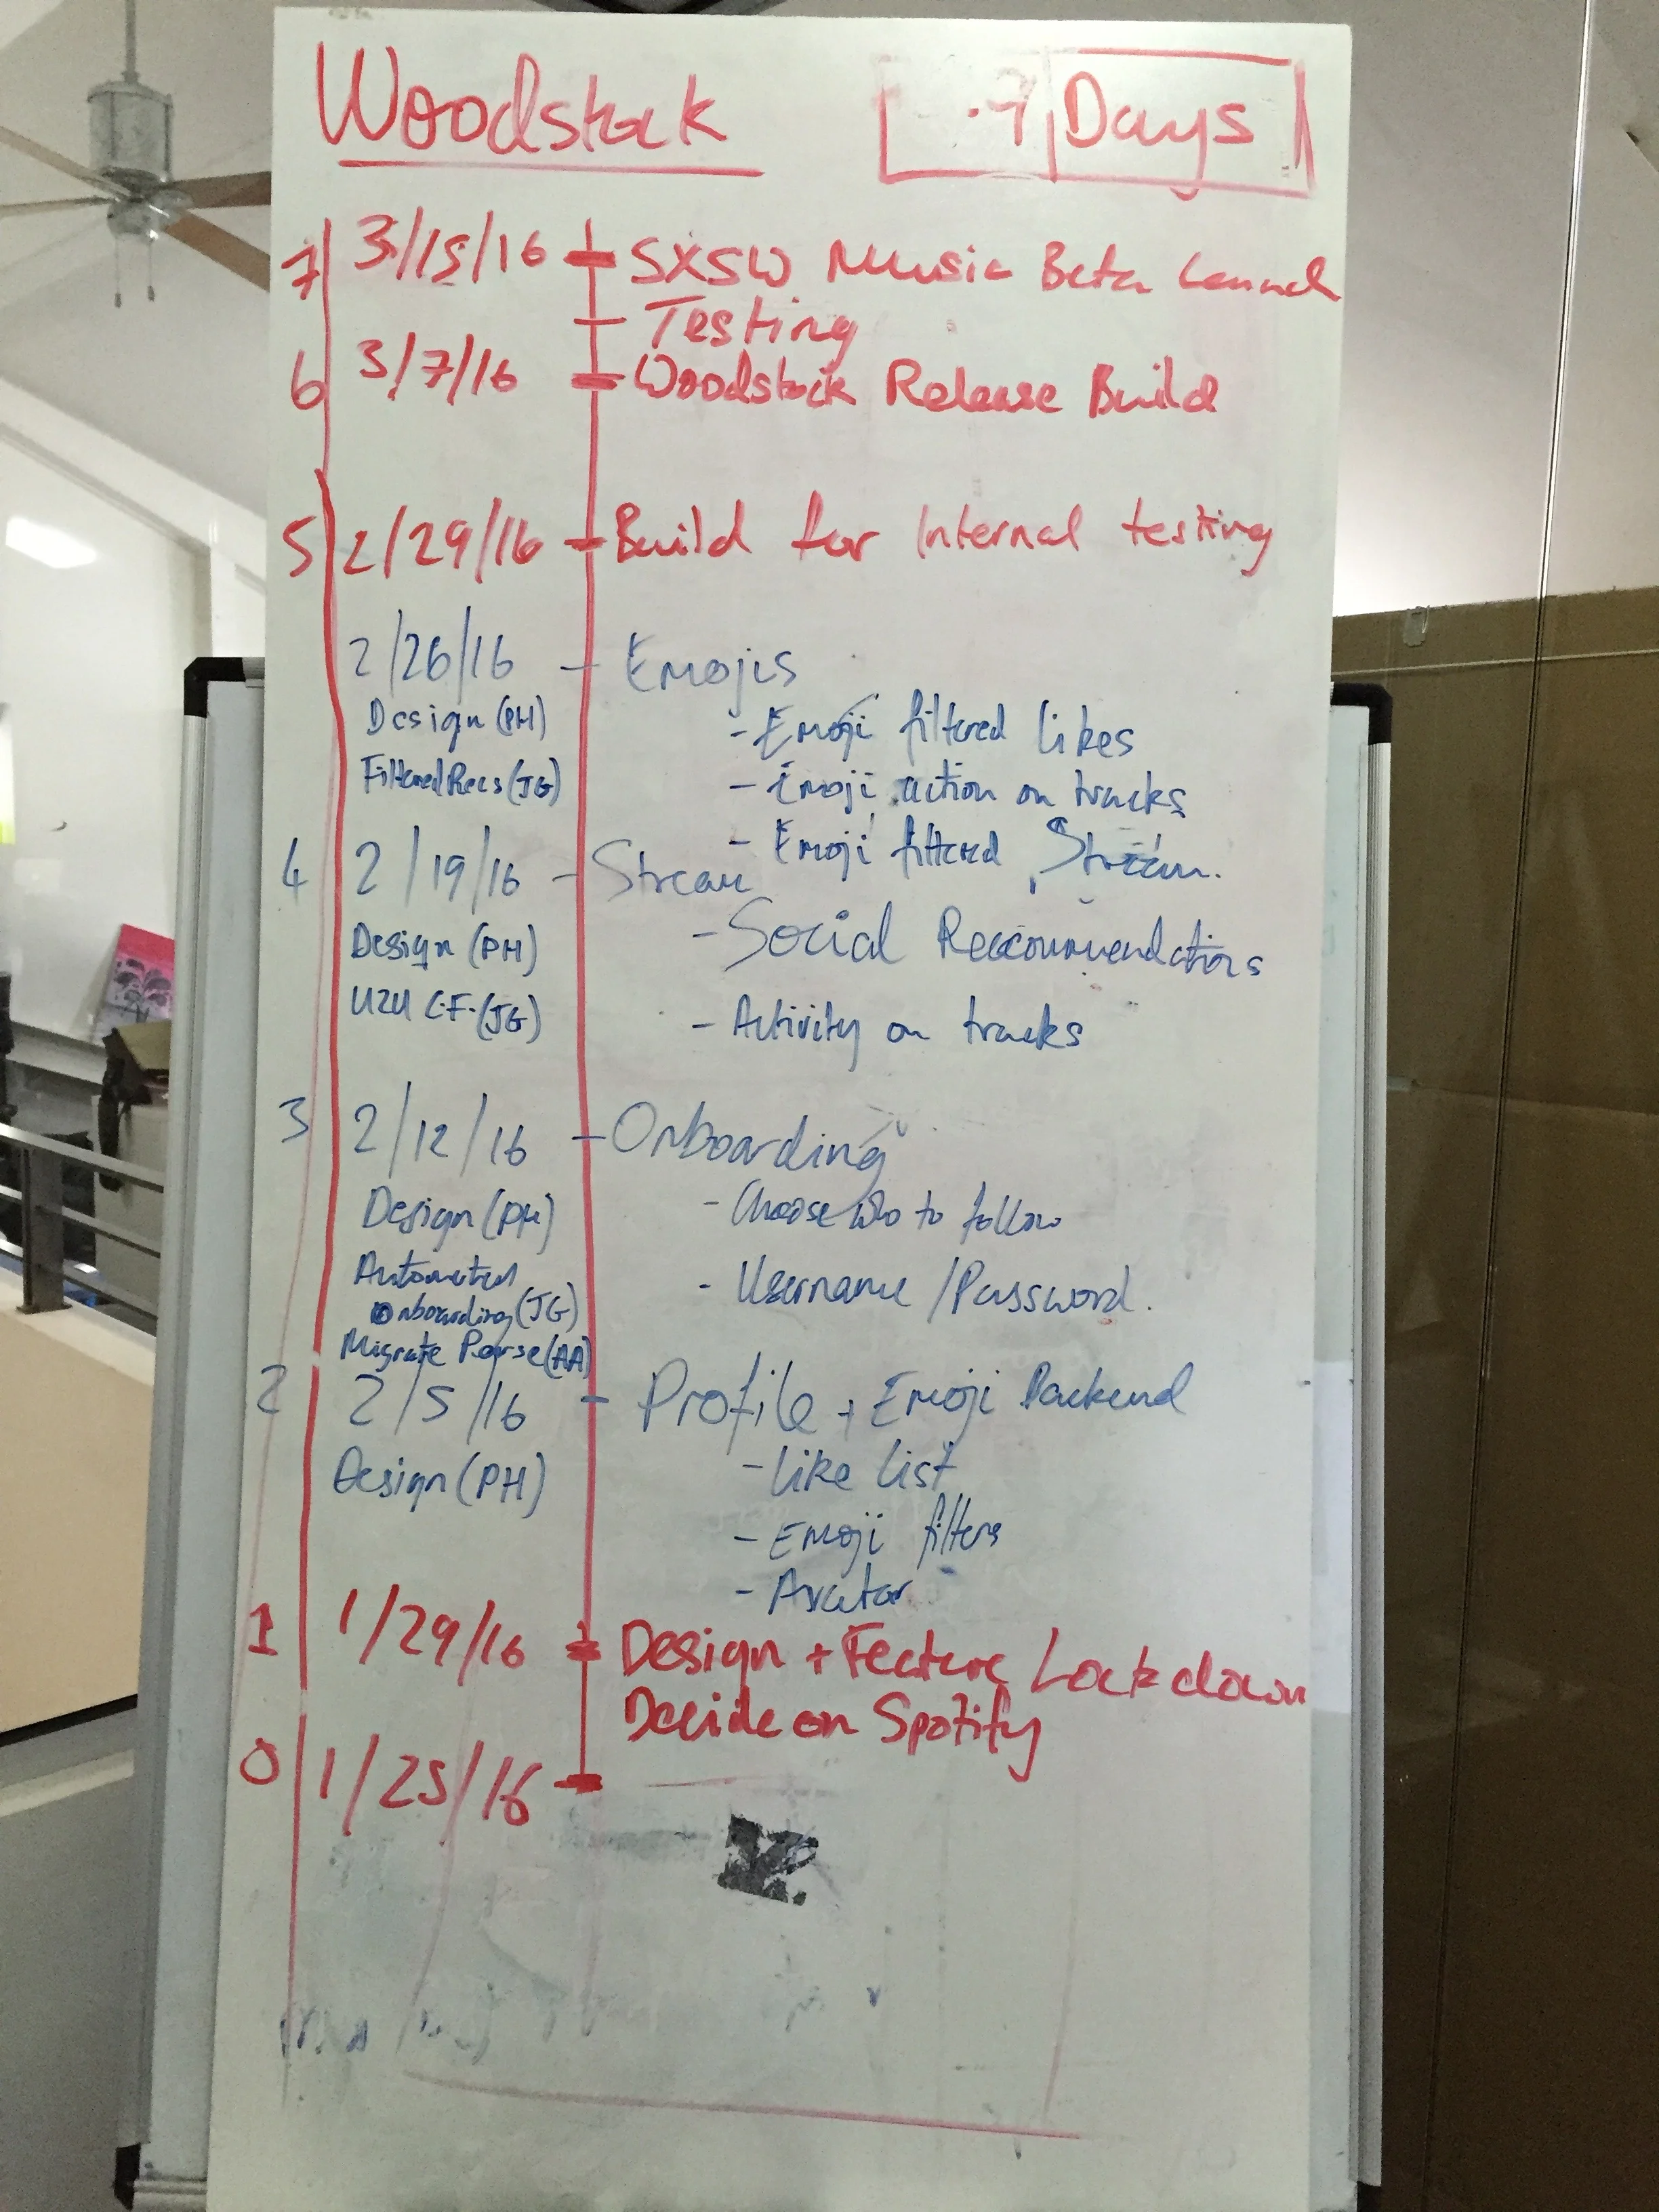 Woodstock
7 Days
7 3/15/16 SXSW Music Beta Launch
Testing
6 3/7/16 Woodstock Release Build
5 2/29/16 Build for Internal testing
2/26/16 - Emojis
Design (PH) - Emoji filtered likes
Filtered Recs (JG) - Emoji action on tracks
- Emoji filtered Stream.
4 2/19/16 - Stream
Design (PH) - Social Reccommendations
U2U C.F. (JG) - Activity on tracks
3 2/12/16 - Onboarding
Design (PH) - Choose who to follow
Automated - Username / Password.
Onboarding (JG)
Migrate Parse (AA)
2 2/5/16 - Profile + Emoji Backend
Design (PH) - Like List
- Emoji filters
- Avatar
1 1/29/16 Design + Feature Lockdown
Decide on Spotify
0 1/25/16